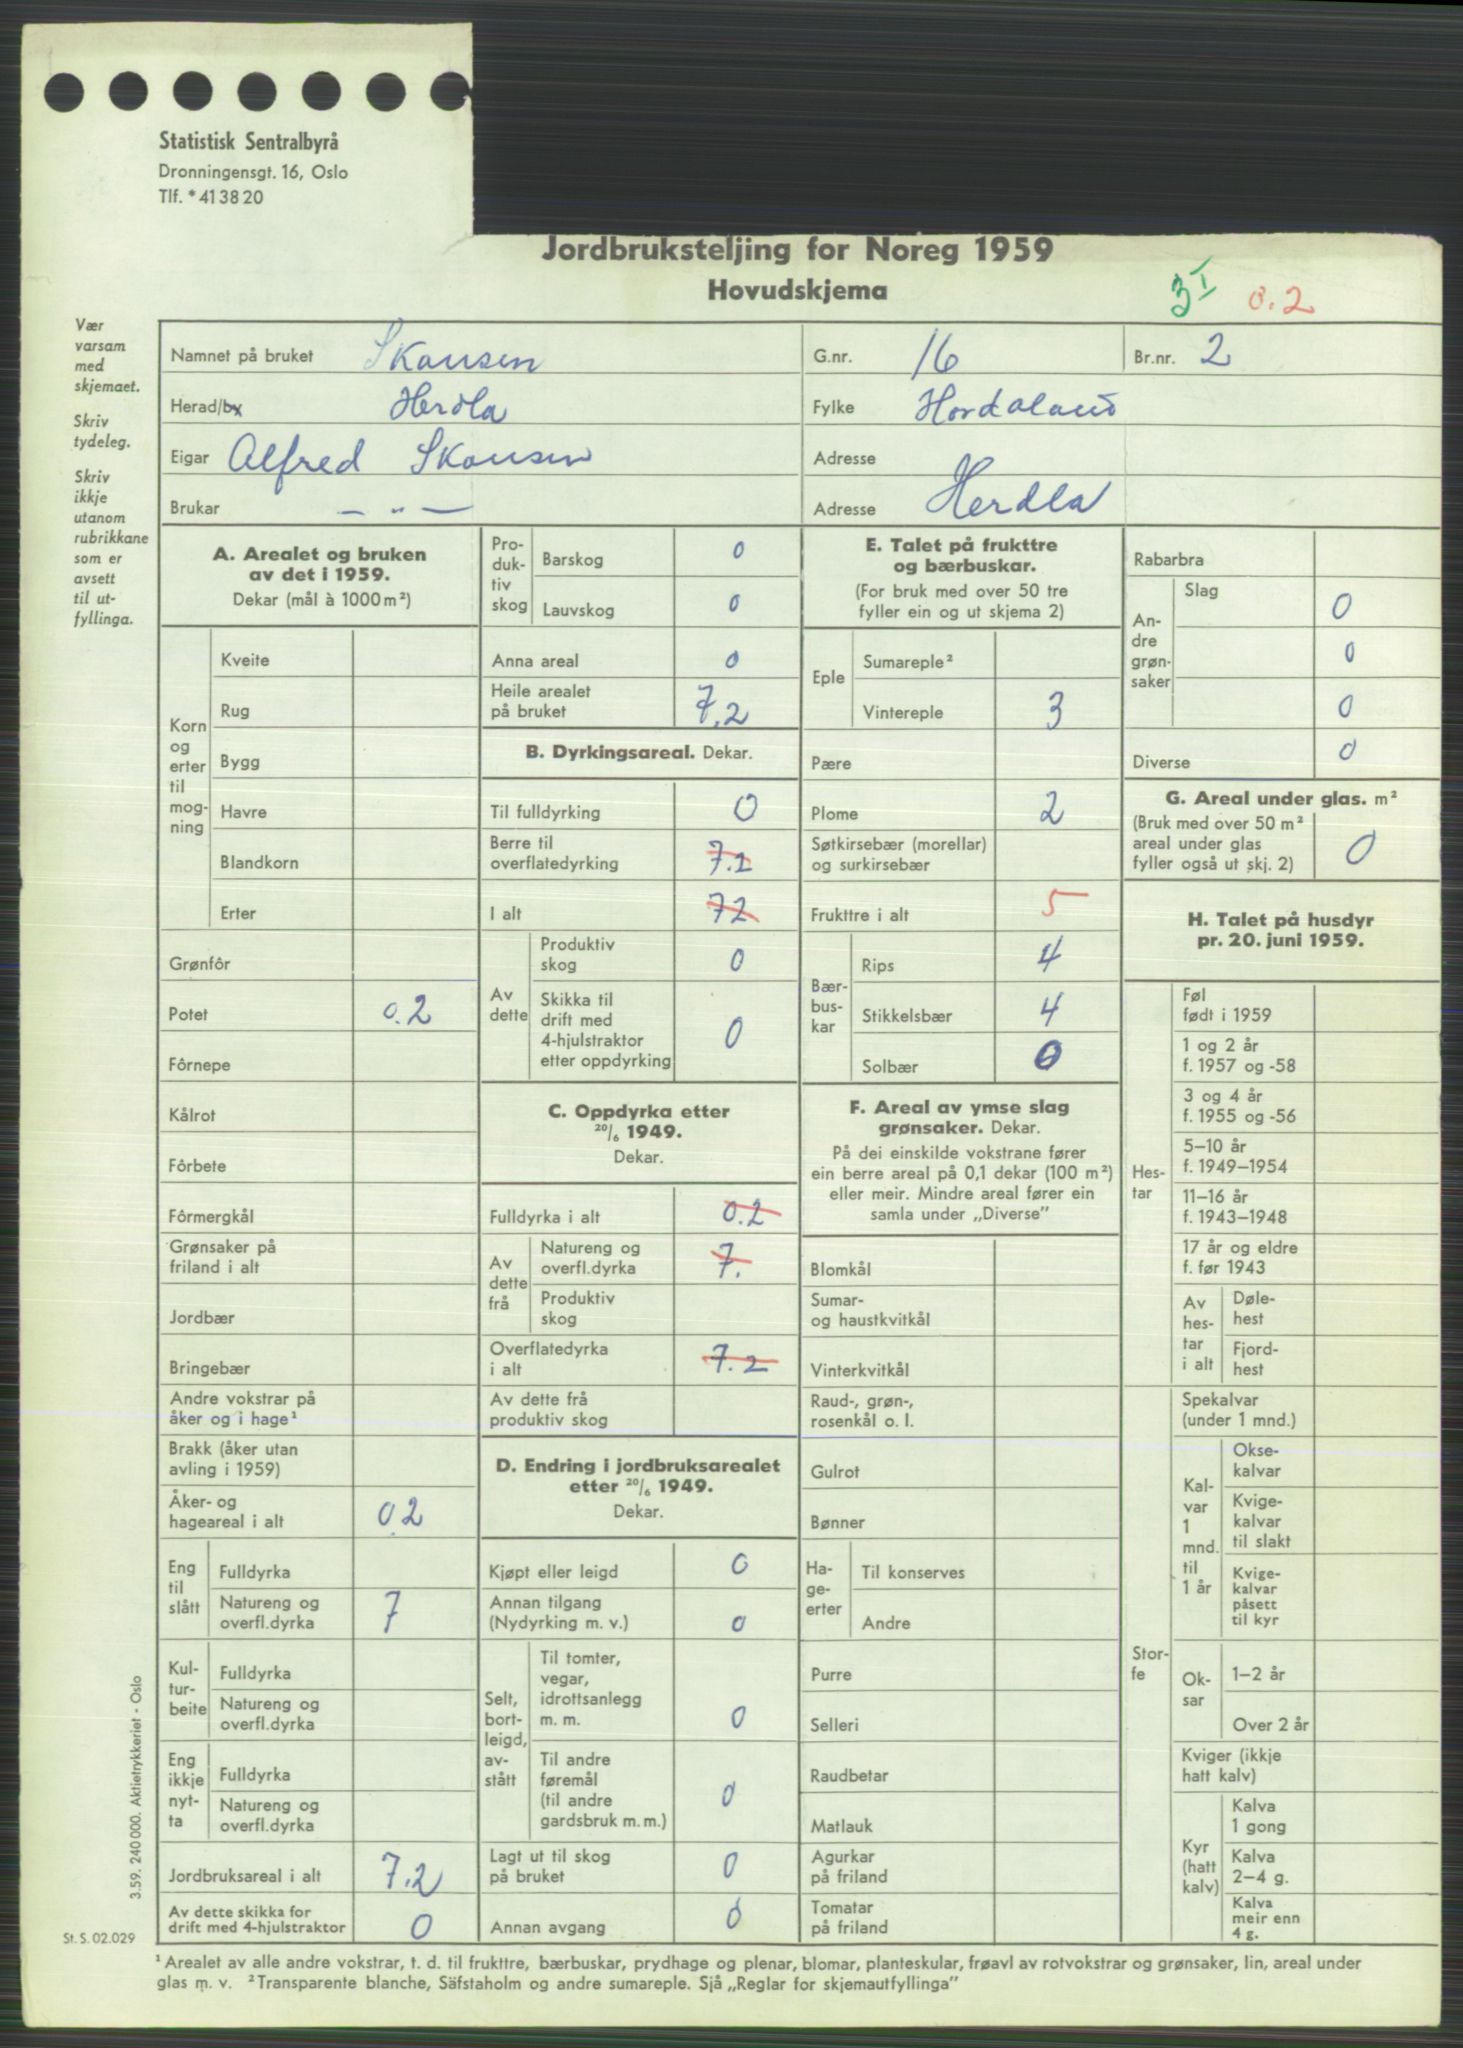 Statistisk Sentralbyrå
Dronningensgt. 16, Oslo
Tlf. *41 38 20
Jordbruksteljing for Noreg 1959
Hovudskjema
3 I 0.2
Vær
varsam
med
skjemaet.
Skriv
tydeleg.
Skriv
ikkje
utanom
rubrikkane
som er
avsett
til ut-
fyllinga.
Namnet på bruket Skansen G.nr. 16 Br.nr. 2
Herad/by Herdla Fylke Hordaland
Eigar Alfred Skansen Adresse
Brukar — " — Adresse Herdla
A. Arealet og bruken
av det i 1959.
Dekar (mål à 1000 m²)
Korn
og
erter
til
mog-
ning
Kveite
Rug
Bygg
Havre
Blandkorn
Erter
Grønfôr
Potet 0.2
Fôrnepe
Kålrot
Fôrbete
Fôrmergkål
Grønsaker på
friland i alt
Jordbær
Bringebær
Andre vokstrar på
åker og i hage¹
Brakk (åker utan
avling i 1959)
Åker- og
hageareal i alt 0.2
Eng
til
slått
Fulldyrka
Natureng og
overfl.dyrka 7
Kul-
tur-
beite
Fulldyrka
Natureng og
overfl.dyrka
Eng
ikkje
nyt-
ta
Fulldyrka
Natureng og
overfl.dyrka
Jordbruksareal i alt 7.2
Av dette skikka for
drift med 4-hjulstraktor 0
Pro-
duk-
tiv
skog
Barskog 0
Lauvskog 0
Anna areal 0
Heile arealet
på bruket 7.2
B. Dyrkingsareal. Dekar.
Til fulldyrking 0
Berre til
overflatedyrking 7.2
I alt 72
Av
dette
Produktiv
skog 0
Skikka til
drift med
4-hjulstraktor
etter oppdyrking 0
C. Oppdyrka etter
20/6 1949.
Dekar.
Fulldyrka i alt 0.2
Av
dette
frå
Natureng og
overfl.dyrka 7.
Produktiv
skog
Overflatedyrka
i alt 7.2
Av dette frå
produktiv skog
D. Endring i jordbruksarealet
etter 20/6 1949.
Dekar.
Kjøpt eller leigd 0
Annan tilgang
(Nydyrking m. v.) 0
Selt,
bort-
leigd,
av-
stått
Til tomter,
vegar,
idrottsanlegg
m. m. 0
Til andre
føremål
(til andre
gardsbruk m. m.) 0
Lagt ut til skog
på bruket 0
Annan avgang 0
E. Talet på frukttre
og bærbuskar.
(For bruk med over 50 tre
fyller ein og ut skjema 2)
Eple
Sumareple²
Vintereple 3
Pære
Plome 2
Søtkirsebær (morellar)
og surkirsebær
Frukttre i alt 5
Bær-
bus-
kar
Rips 4
Stikkelsbær 4
Solbær 0
F. Areal av ymse slag
grønsaker. Dekar.
På dei einskilde vokstrane fører
ein berre areal på 0,1 dekar (100 m²)
eller meir. Mindre areal fører ein
samla under „Diverse”
Blomkål
Sumar-
og haustkvitkål
Vinterkvitkål
Raud-, grøn-,
rosenkål o. l.
Gulrot
Bønner
Ha-
ge-
erter
Til konserves
Andre
Purre
Selleri
Raudbetar
Matlauk
Agurkar
på friland
Tomatar
på friland
Rabarbra
An-
dre
grøn-
saker
Slag
0
0
0
Diverse 0
G. Areal under glas. m²
(Bruk med over 50 m²
areal under glas
fyller også ut skj. 2) 0
H. Talet på husdyr
pr. 20. juni 1959.
Hes-
tar
Føl
født i 1959
1 og 2 år
f. 1957 og -58
3 og 4 år
f. 1955 og -56
5–10 år
f. 1949–1954
11–16 år
f. 1943–1948
17 år og eldre
f. før 1943
Av
hes-
tar
i alt
Døle-
hest
Fjord-
hest
Stor-
fe
Spekalvar
(under 1 mnd.)
Kal-
var
1
mnd.
til
1 år
Okse-
kalvar
Kvige-
kalvar
til slakt
Kvige-
kalvar
påsett
til kyr
Ok-
sar
1–2 år
Over 2 år
Kviger (ikkje
hatt kalv)
Kyr
(hatt
kalv)
Kalva
1 gong
Kalva
2–4 g.
Kalva
meir enn
4 g.
3.59. 240 000. Aktietrykkeriet - Oslo
St. S. 02.029
¹ Arealet av alle andre vokstrar, t. d. til frukttre, bærbuskar, prydhage og plenar, blomar, planteskular, frøavl av rotvokstrar og grønsaker, lin, areal under
glas m. v. ² Transparente blanche, Säfstaholm og andre sumareple. Sjå „Reglar for skjemautfyllinga”